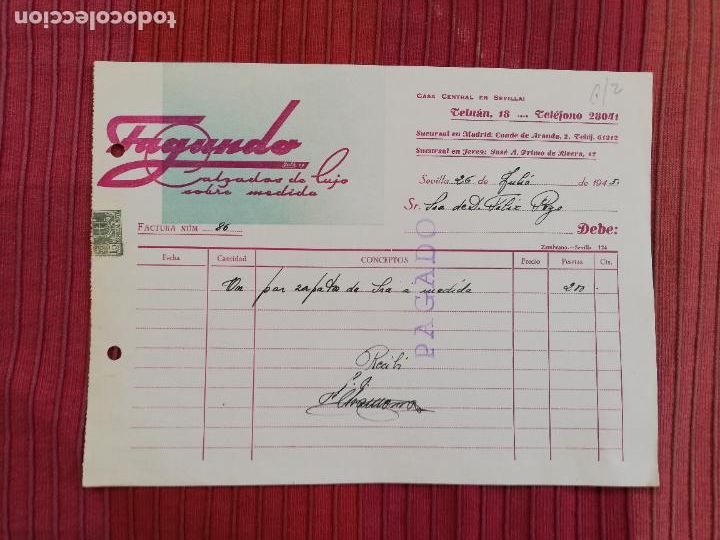 todocoleccion
Fagundo
Calzados de lujo
sobre medida
CASA CENTRAL EN SEVILLA:
Tetuán, 18 .... Teléfono 28041
Sucursal en Madrid: Conde de Aranda, 2. Teléf. 61212
Sucursal en Jerez: José A. Primo de Rivera, 17
Sevilla 26 de Julio de 1945
Sr. Sra de D. Félix Pozo
FACTURA NÚM 86
Debe:
Zambrano.-Sevilla
Fecha Cantidad CONCEPTOS Precio Pesetas Cts.
Un par zapatos de Sra a medida
PAGADO
Recibí
P. O.